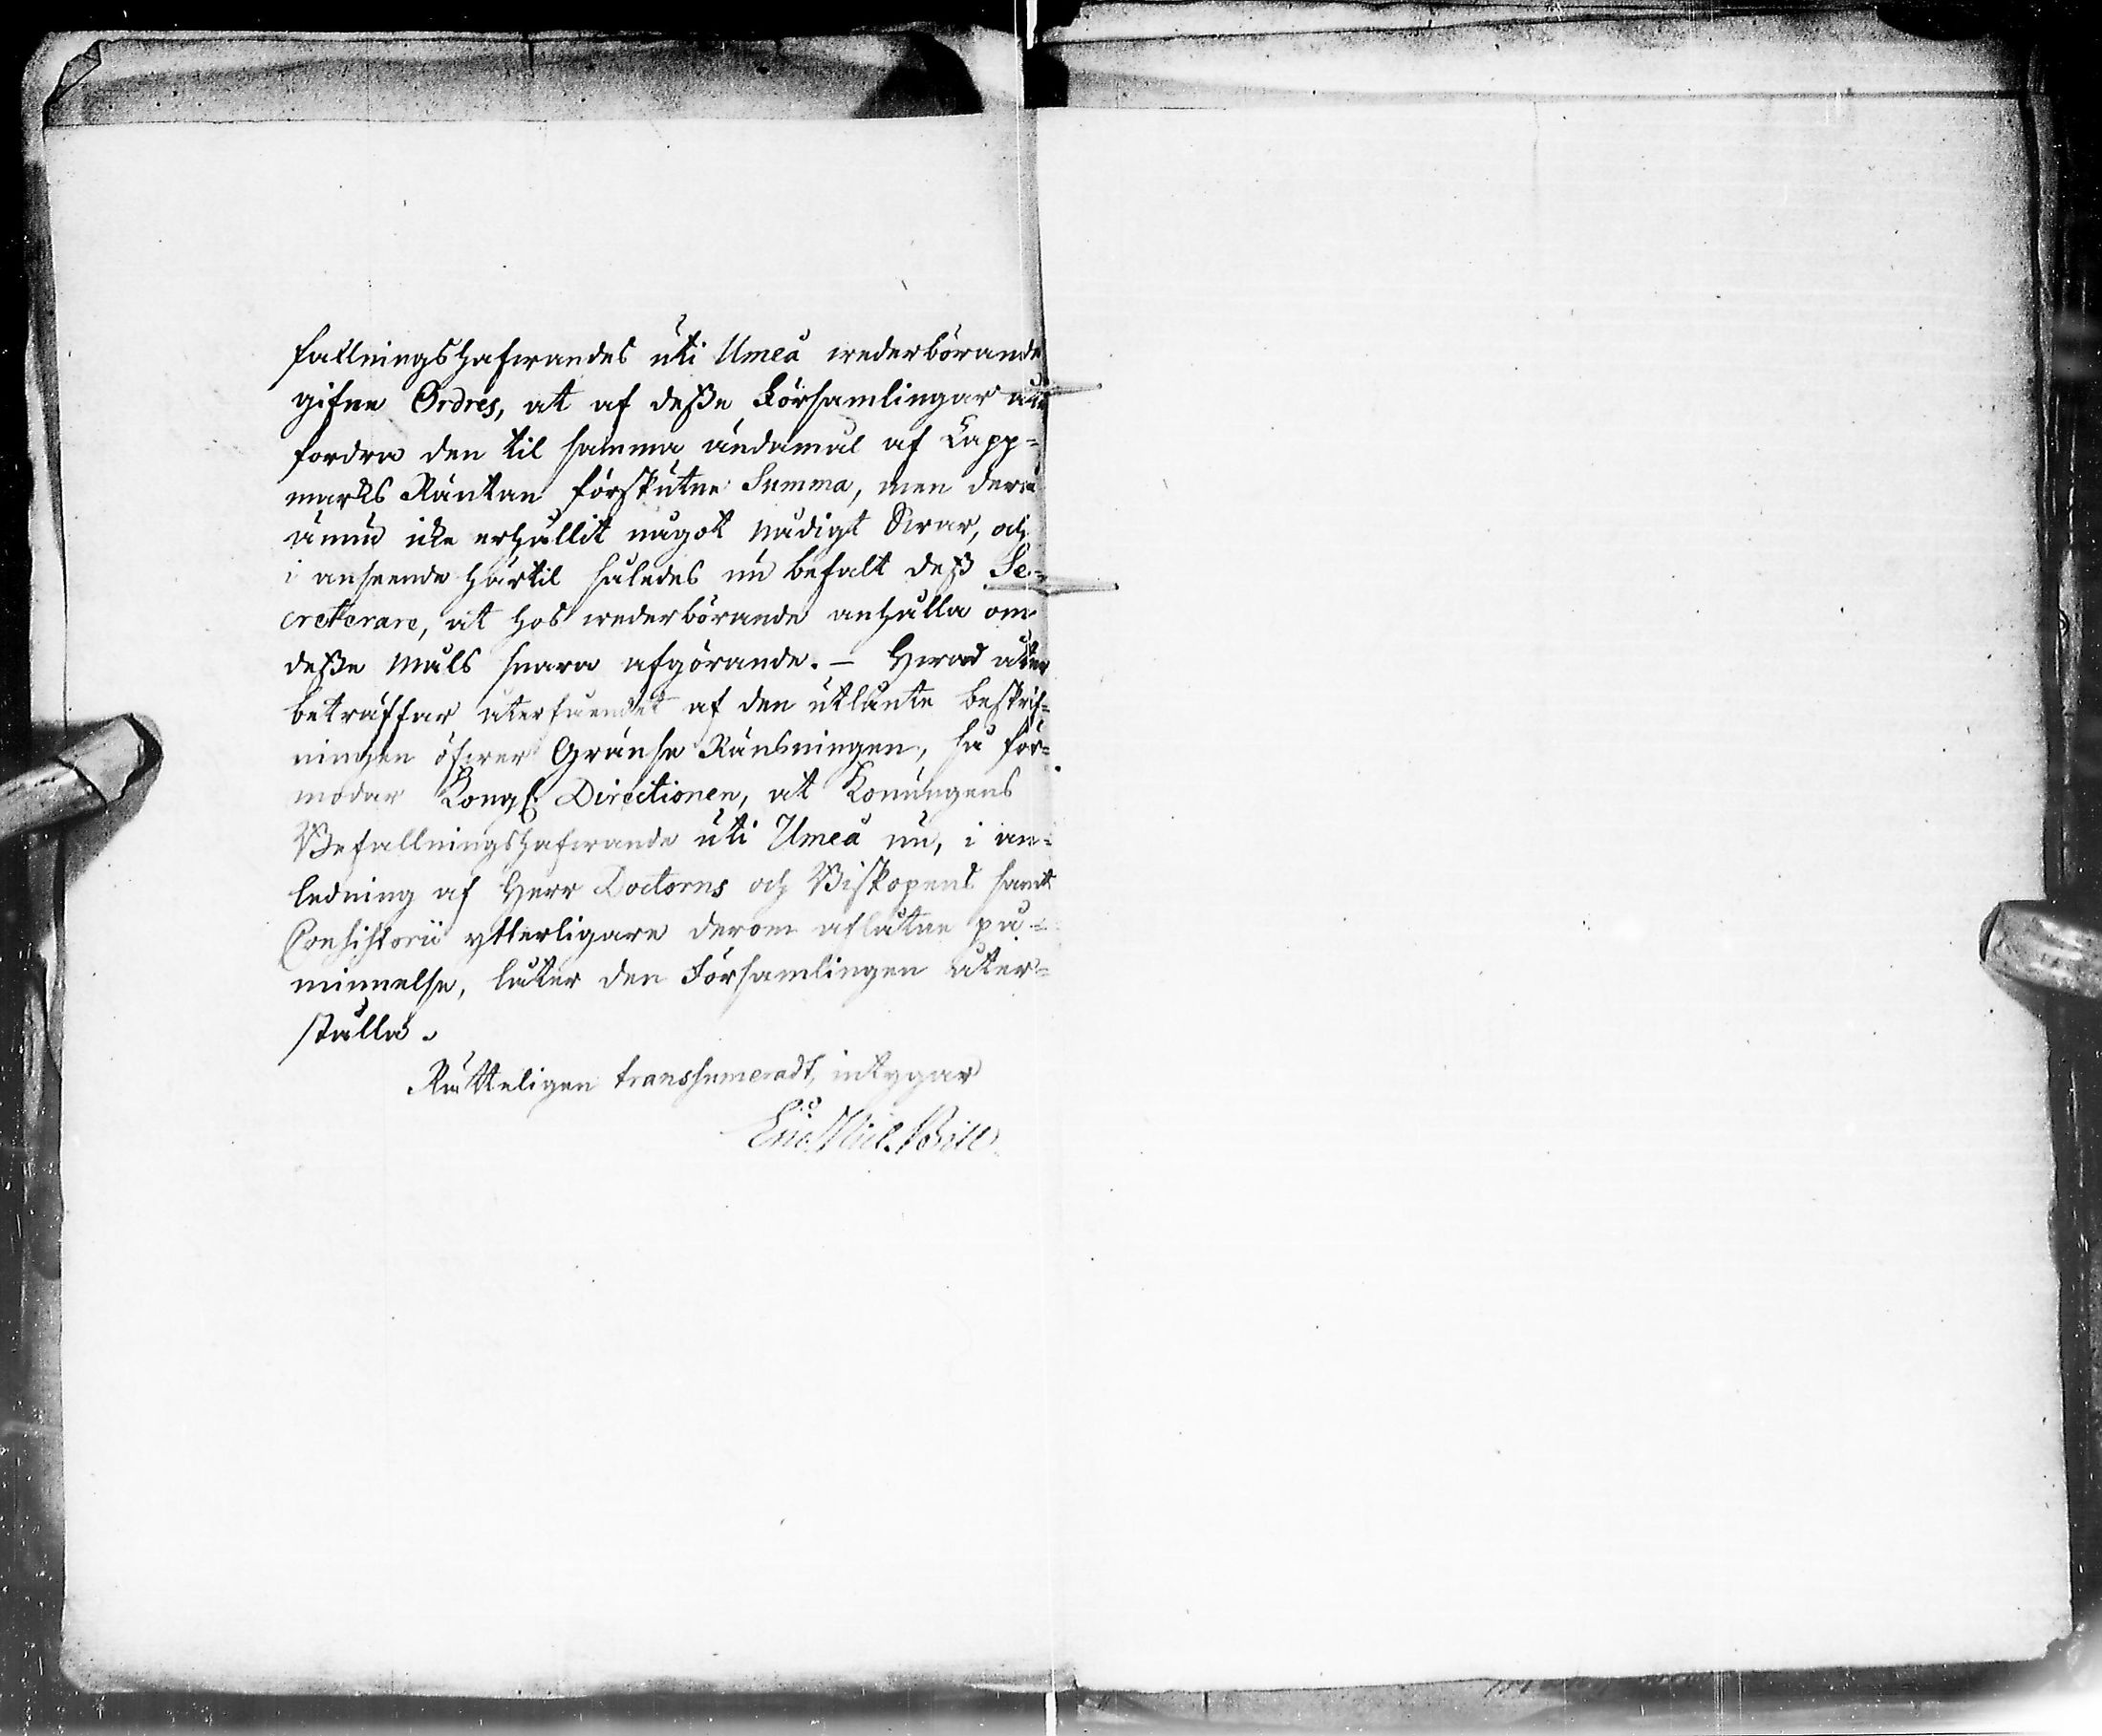 fallningshafwandes uti Umeå wederbörande
gifne Ordres, at af desze Församlingar ut
fordra den til samma ändamål af Lapp=
marks Räntan förskutne Summa, men derå
ännu icke erhållit något nådigt Swar, och
i anseende härtil således nu befalt desz Se=
creterare, at hos wederbörande anhålla om
desze måls snara afgörande. – Hwad åter
beträffar återfåendet af den utlånte beskrif=
ningen öfwer Gränse Ränsningen, så för=
modar Kongl. Directionen, at Konungens
Befallningshafwande uti Umeå nu, i an=
ledning af Herr Doctorns och Biskopens samt
Consistorii ytterligare derom aflåtne på=
minnelse, låter den Församlingen åter=
ställa.
Rätteligen transsumeradt, intygar